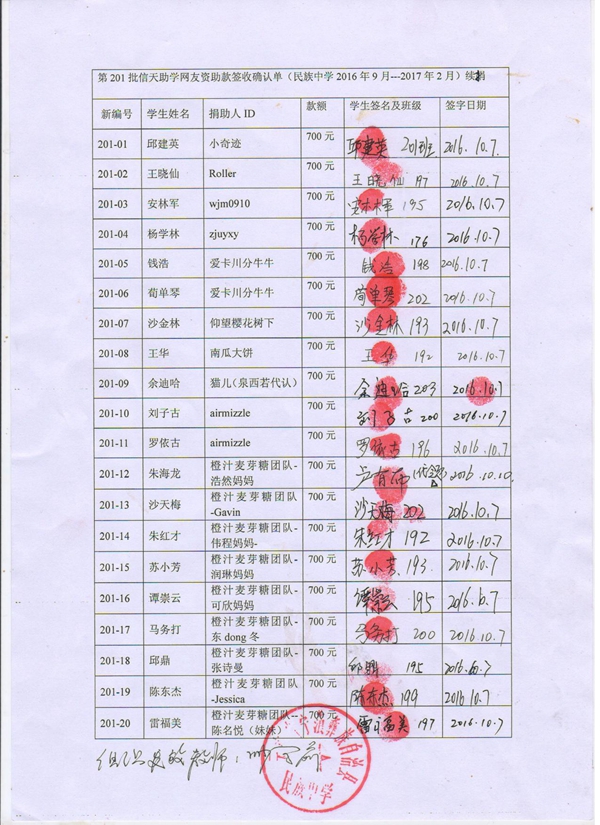 第 201 批信天助学网友资助款签收确认单（民族中学 2016 年 9 月---2017 年 2 月）续捐
新编号 学生姓名 捐助人 ID 款额 学生签名及班级 签字日期
201-01 邱建英 小奇迹 700 元 邱建英 201班 2016.10.7.
201-02 王晓仙 Roller 700 元 王晓仙 197 2016.10.7
201-03 安林军 wjm0910 700 元 安林军 195 2016.10.7
201-04 杨学林 zjuyxy 700 元 杨学林 176 2016.10.7
201-05 钱浩 爱卡川分牛牛 700 元 钱浩 198 2016.10.7
201-06 荀单琴 爱卡川分牛牛 700 元 荀单琴 202 2016.10.7
201-07 沙金林 仰望樱花树下 700 元 沙金林 193 2016.10.7
201-08 王华 南瓜大饼 700 元 王华 192 2016.10.7
201-09 余迪哈 猫儿（泉西若代认） 700 元 余迪哈 203 2016.10.7
201-10 刘子古 airmizzle 700 元 刘子古 200 2016.10.7
201-11 罗依古 airmizzle 700 元 罗依古 196 2016.10.7
201-12 朱海龙 橙汁麦芽糖团队- 700 元 2016.10.10.
浩然妈妈
201-13 沙天梅 橙汁麦芽糖团队 700 元 沙天梅 202 2016.10.7
-Gavin
201-14 朱红才 橙汁麦芽糖团队- 700 元 朱红才 192 2016.10.7
伟程妈妈-
201-15 苏小芳 橙汁麦芽糖团队- 700 元 苏小芳 193 2016.10.7
润琳妈妈
201-16 谭崇云 橙汁麦芽糖团队- 700 元 谭崇云 195 2016.10.7
可欣妈妈
201-17 马务打 橙汁麦芽糖团队- 700 元 马务打 200 2016.10.7
东 dong 冬
201-18 邱鼎 橙汁麦芽糖团队- 700 元 邱鼎 195 2016.10.7
张诗曼
201-19 陈东杰 橙汁麦芽糖团队 700 元 陈东杰 199 2016.10.7
-Jessica
201-20 雷福美 橙汁麦芽糖团队- 700 元 雷福美 197 2016.10.7
陈名悦（妹妹）
彝族自治县
民族中学